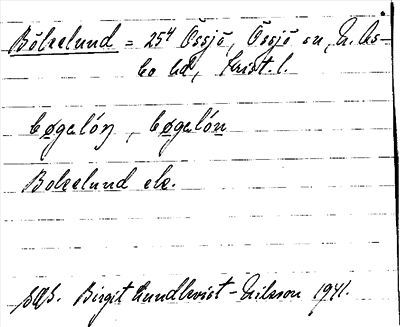 Bökelund = 25⁴ Össjö, Össjö sn, N. Ås-
bo hd, Krist. l.
bøgəlón, bøgəlón
Bokelund ek.
Birgit Lundkvist-Nilsson 1941.